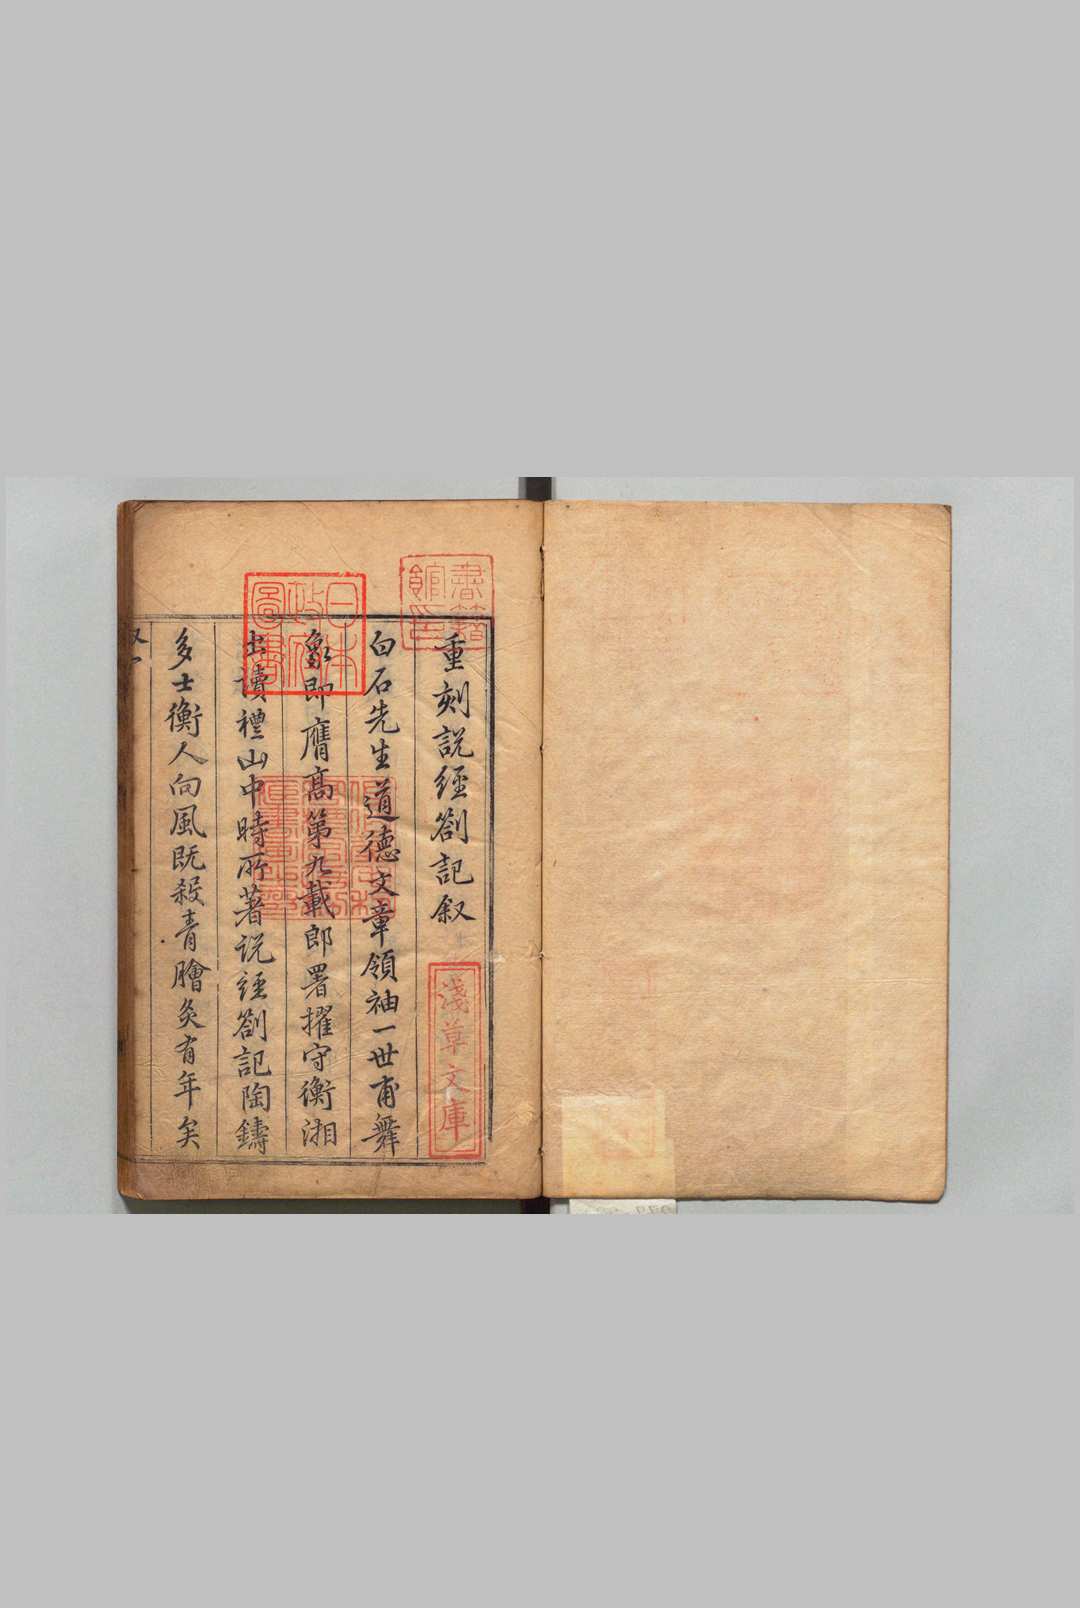 重刻説經劄記叙
白石先生道德文章領袖一世甫舞
象即膺高第九載郎署擢守衡湘
出讀禮山中時所著説經劄記陶鑄
多士衡人向風既殺青膾炙有年矣
叙一
書籍館印
日本政府圖書
淺草文庫